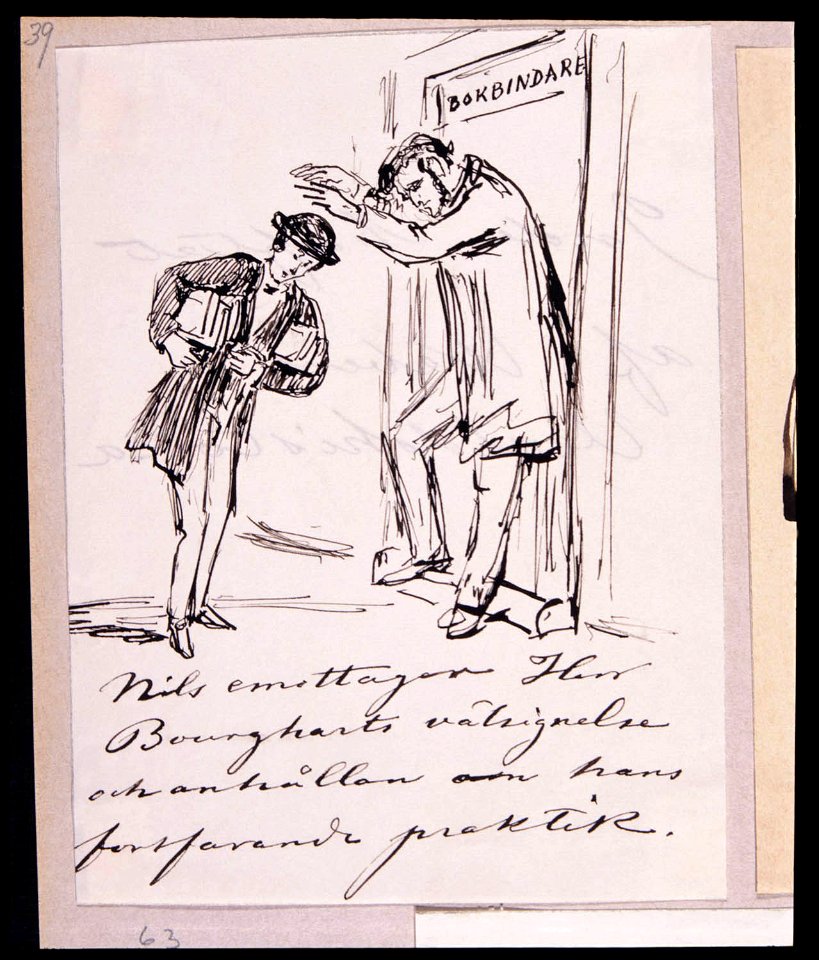 39
BOKBINDARE
Nils emottager Herr
Bourgharts välsignelse
och anhållan om hans
fortfarande praktik.
63